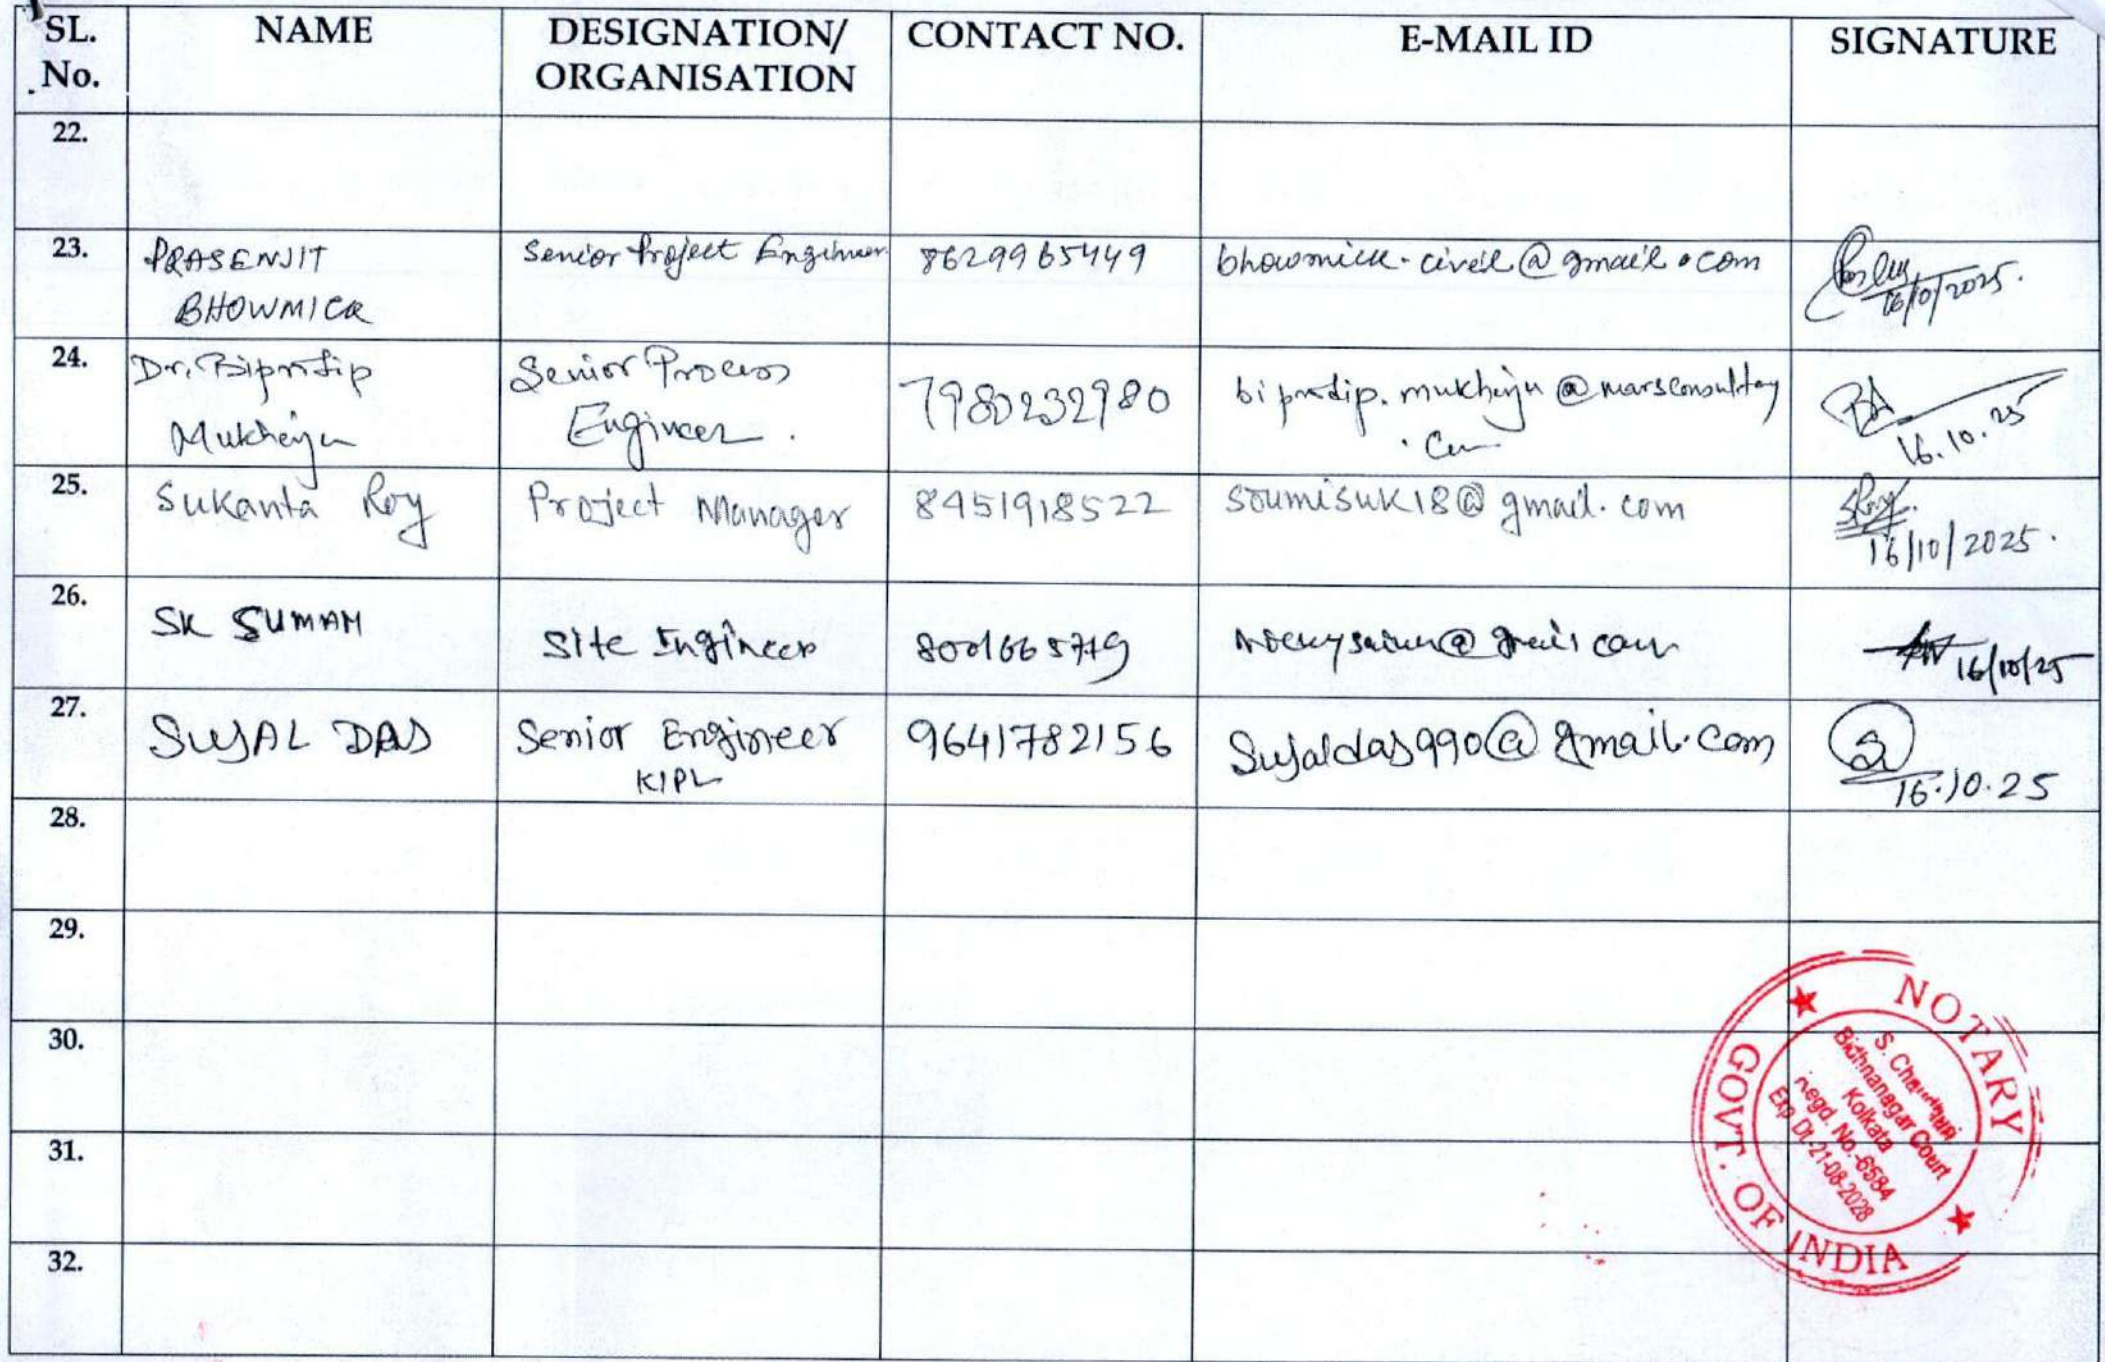 SL. No. NAME DESIGNATION/ ORGANISATION CONTACT NO. E-MAIL ID SIGNATURE
22.
23. PRASENJIT BHOWMICK Senior Project Engineer 8629965449 bhowmick.civil@gmail.com 16/10/2025.
24. Dr. Bipradip Mukherjee Senior Process Engineer. 7980232980 16.10.25
25. Sukanta Roy Project Manager 8451918522 soumisuk18@gmail.com SRoy 16/10/2025.
26. SK SUMAN Site Engineer 16/10/25
27. SUJAL DAS Senior Engineer KIPL 9641782156 Sujaldas990@gmail.com 16.10.25
28.
29.
30.
31.
32.
NOTARY
GOVT. OF INDIA
S.
Bidhnanagar Court
Kolkata
Regd. No.-6584
Exp Dt.-21-08-2028